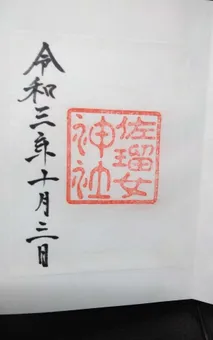 佐瑠女
神社
令和三年十月三日